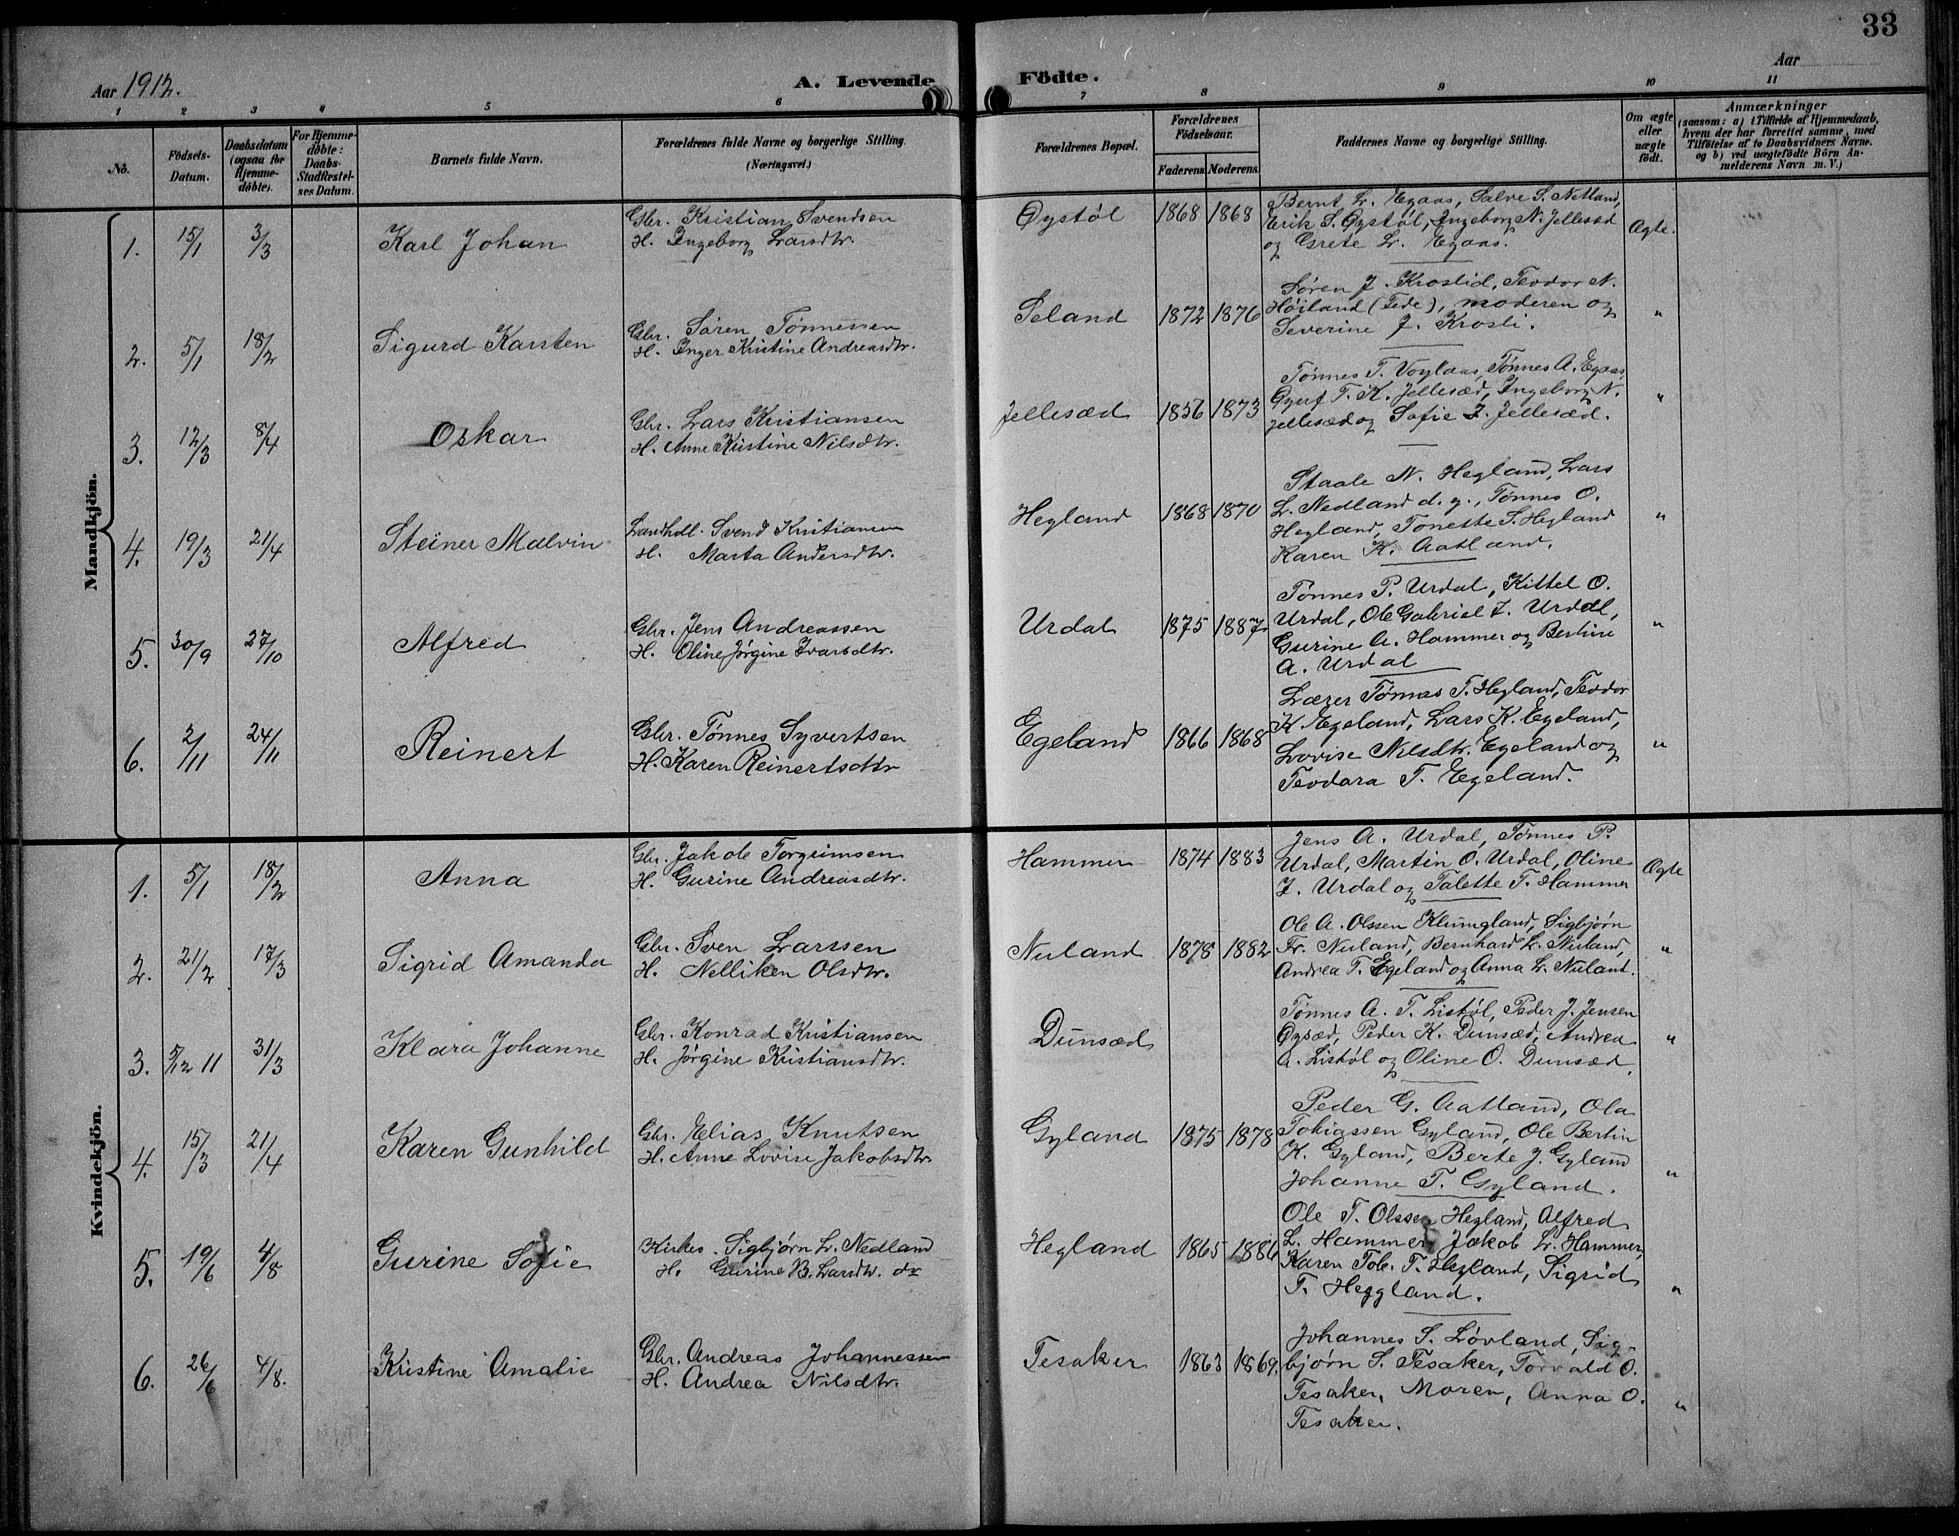 33
Aar 1912.
A. Levende Födte.
Aar
1 2 3 4 5 6 7 8 9 10 11
No.
Födsels-Datum.
Daabsdatum (ogsaa for Hjemme-döbte).
For Hjemme-döbte: Daabs-Stadfestel-ses Datum.
Barnets fulde Navn.
Forældrenes fulde Navne og borgerlige Stilling.
(Næringsvei.)
Forældrenes Bopæl.
Forældrenes Födselsaar.
Faderens Moderens
Faddernes Navne og borgerlige Stilling.
Om ægte eller uægte födt.
Anmærkninger
(saasom: a) i Tilfælde af Hjemmedaab, hvem der har forrettet samme, med Tilföielse af to Daabsvidners Navne. og b) ved uægtefödte Börn An-melderens Navn m. V.)
Mandkjön.
1. 15/1 3/3 Karl Johan
Gbr. Kristian Svendsen
H. Ingeborg Larsdtr.
Øystøl 1868 1868
Bernt L. Egaas, Salve S. Netland,
Erik S. Øystøl, Ingeborg N. Jellesæd
og Grete L. Egaas.
Ægte.
2. 5/1 18/2 Sigurd Karsten
Gbr. Søren Tønnessen
H. Inger Kristine Andreasdtr.
Seland 1872 1876
Søren J. Kroslid, Teodor N.
Høiland (Fede), moderen og
Severine J. Krosli.
"
3. 12/3 8/4 Oskar
Gbr. Lars Kristiansen
H. Anne Kristine Nilsdtr.
Jellesæd 1856 1873
Tønnes T. Voglaas, Tønnes A. Egaas,
T. K. Jellesæd, Ingeborg N.
Jellesæd og Sofie J. Jellesæd.
"
4. 19/3 21/4 Steiner Malvin
Landhdl. Svend Kristiansen
H. Marta Andersdtr.
Hegland 1868 1870
Staale N. Hegland, Lars
L. Nedland d. y., Tønnes O.
Hegland, Tonette S. Hegland
Karen K. Aatland.
"
5. 30/9 27/10 Alfred
Gbr. Jens Andreassen
H. Oline Jørgine Ivarsdtr.
Urdal 1875 1887
Tønnes P. Urdal, Kittel O.
Urdal, Ole Gabriel J. Urdal,
Gurine A. Hammer og Bertine
A. Urdal
"
6. 2/11 24/11 Reinert
Gbr. Tønnes Syvertsen
H. Karen Reinertsdtr
Egeland 1866 1868
Lærer Tønnes T. Hegland, Teodor
K. Egeland, Lars K. Egeland,
Lovise Nilsdtr. Egeland og
Teodara T. Egeland.
"
Kvindekjön.
1. 5/1 18/2 Anna
Gbr. Jakob Torgrimsen
H. Gurine Andreasdtr.
Hammer 1874 1883
Jens A. Urdal, Tønnes P.
Urdal, Martin O. Urdal, Oline
J. Urdal og Talette T. Hammer
Ægte
2. 21/2 17/3 Sigrid Amanda
Gbr. Sven Larssen
H. Nelliken Olsdtr.
Nuland 1878 1882
Ole A. Olssen Klungland, Sigbjørn
Fr. Nuland, Bernhard L. Nuland,
Andrea T. Egeland og Anna L. Nuland.
"
3. 5/12 11 31/3 Klara Johanne
Gbr. Konrad Kristiansen
H. Jørgine Kristiansdtr.
Dunsæd
Tønnes A. T. Listøl, Peder J. Jensen
Øysæd, Peder K. Dunsæd, Andrea
A. Listøl og Oline O. Dunsæd.
"
4. 15/3 21/4 Karen Gunhild
Gbr. Elias Knutsen
H. Anne Lovise Jakobsdtr.
Gyland 1875 1878
Peder G. Aatland, Ola
Tobiassen Gyland, Ole Bertin
K. Gyland, Berte J. Gyland
Johanne T. Gyland.
"
5. 19/6 4/8 Gurine Sofie
Kirkes. Sigbjørn L. Nedland
H. Gurine B. Larsdtr. do
Hegland 1865 1886
Ole T. Olssen Hegland, Alfred
L. Hammer, Jakob L. Hammer,
Karen Tob. T. Hegland, Sigrid
T. Heggland.
"
6. 26/6 4/8. Kristine Amalie
Gbr. Andreas Johannessen
H. Andrea Nilsdtr.
Tesaker 1863 1869.
Johannes S. Løvland, Sig-
bjørn S. Tesaker, Torvald O.
Tesaker, Moren, Anna O.
Tesaker.
"